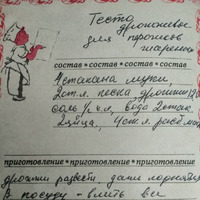 Тесто
дрожжевое
для пирогов
жареных
состав * состав * состав * состав
4 стакана муки,
2 ст.л. песка, дрожжи
соль ½ ч.л, вода 2 стак.
2 яйца, 4 ст.л. раст. мас
приготовление * приготовление * приготовление
дрожжи развести дать подняться
В посуду - влить все